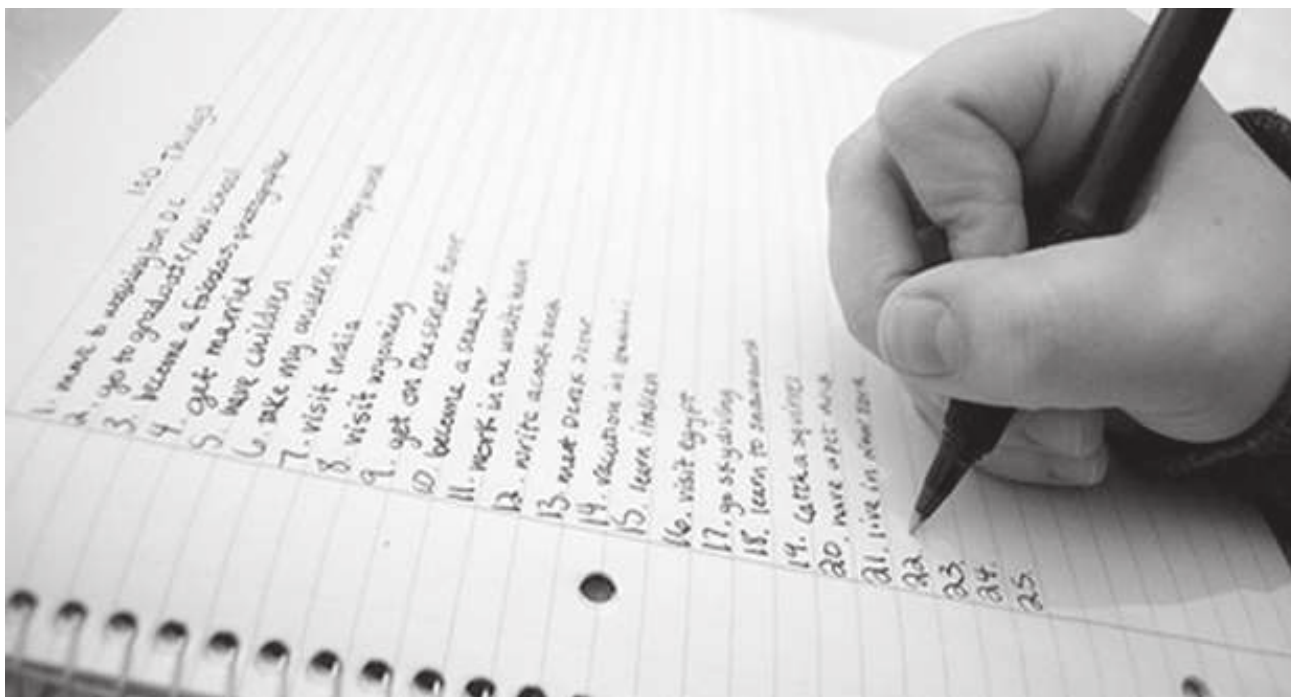 100 Things
1. move to washington DC
2. go to graduate/law school
3. become a fabulous photographer
4. get married
5. have children
6. take my children to disney world
7. visit India
8. visit wyoming
9. get on the senate floor
10. become a senator
11. work in the white house
12. write a
13. meet
14. vacation in
15. learn italian
16. visit egypt
17. go skydiving
18. learn to snowboard
19. catch a squirrel
20. have a pet
21. live in new york
22.
23.
24.
25.